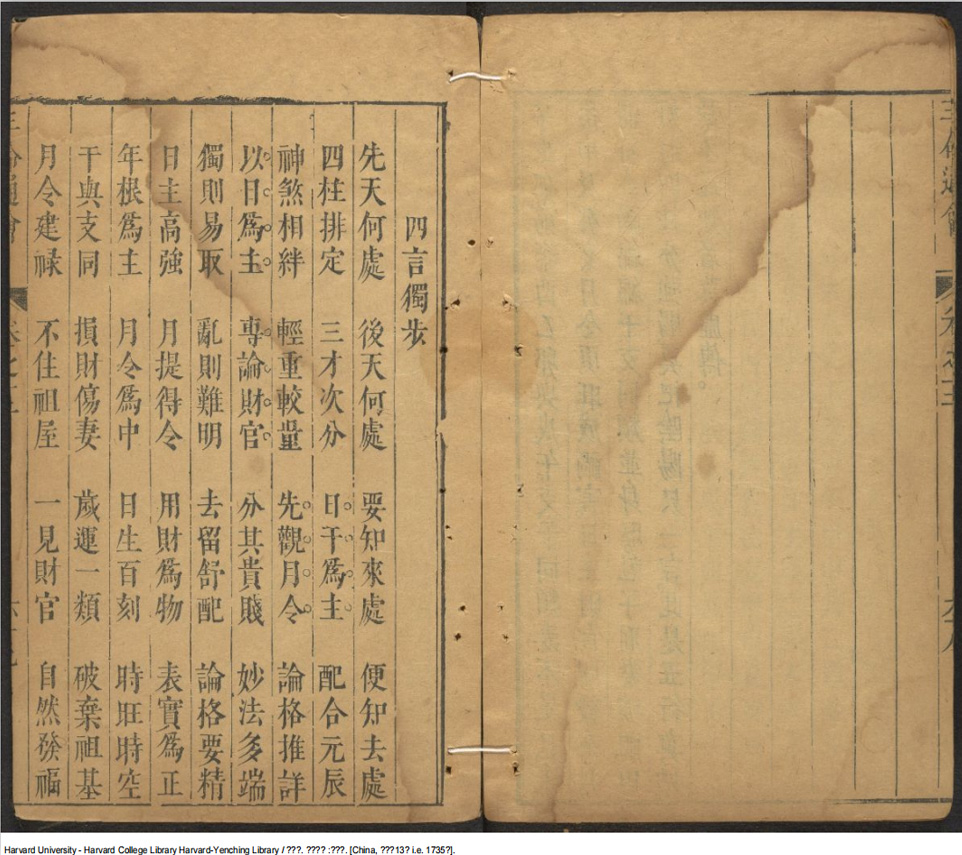 四言獨步
先天何處 後天何處 要知來處 便知去處
四柱排定 三才次分 日干爲主 配合元辰
神煞相絆 輕重較量 先觀月令 論格推詳
以日爲主 專論財官 分其貴賤 妙法多端
獨則易取 亂則難明 去留舒配 論格要精
日主高強 月提得令 用財爲物 表實爲正
年根爲主 月令爲中 日生百刻 時旺時空
干與支同 損財傷妻 歲運一類 破棄祖基
月令建祿 不住祖屋 一見財官 自然發福
Harvard University - Harvard College Library Harvard-Yenching Library / ???. ???? :???. [China, ???13? i.e. 1735?].